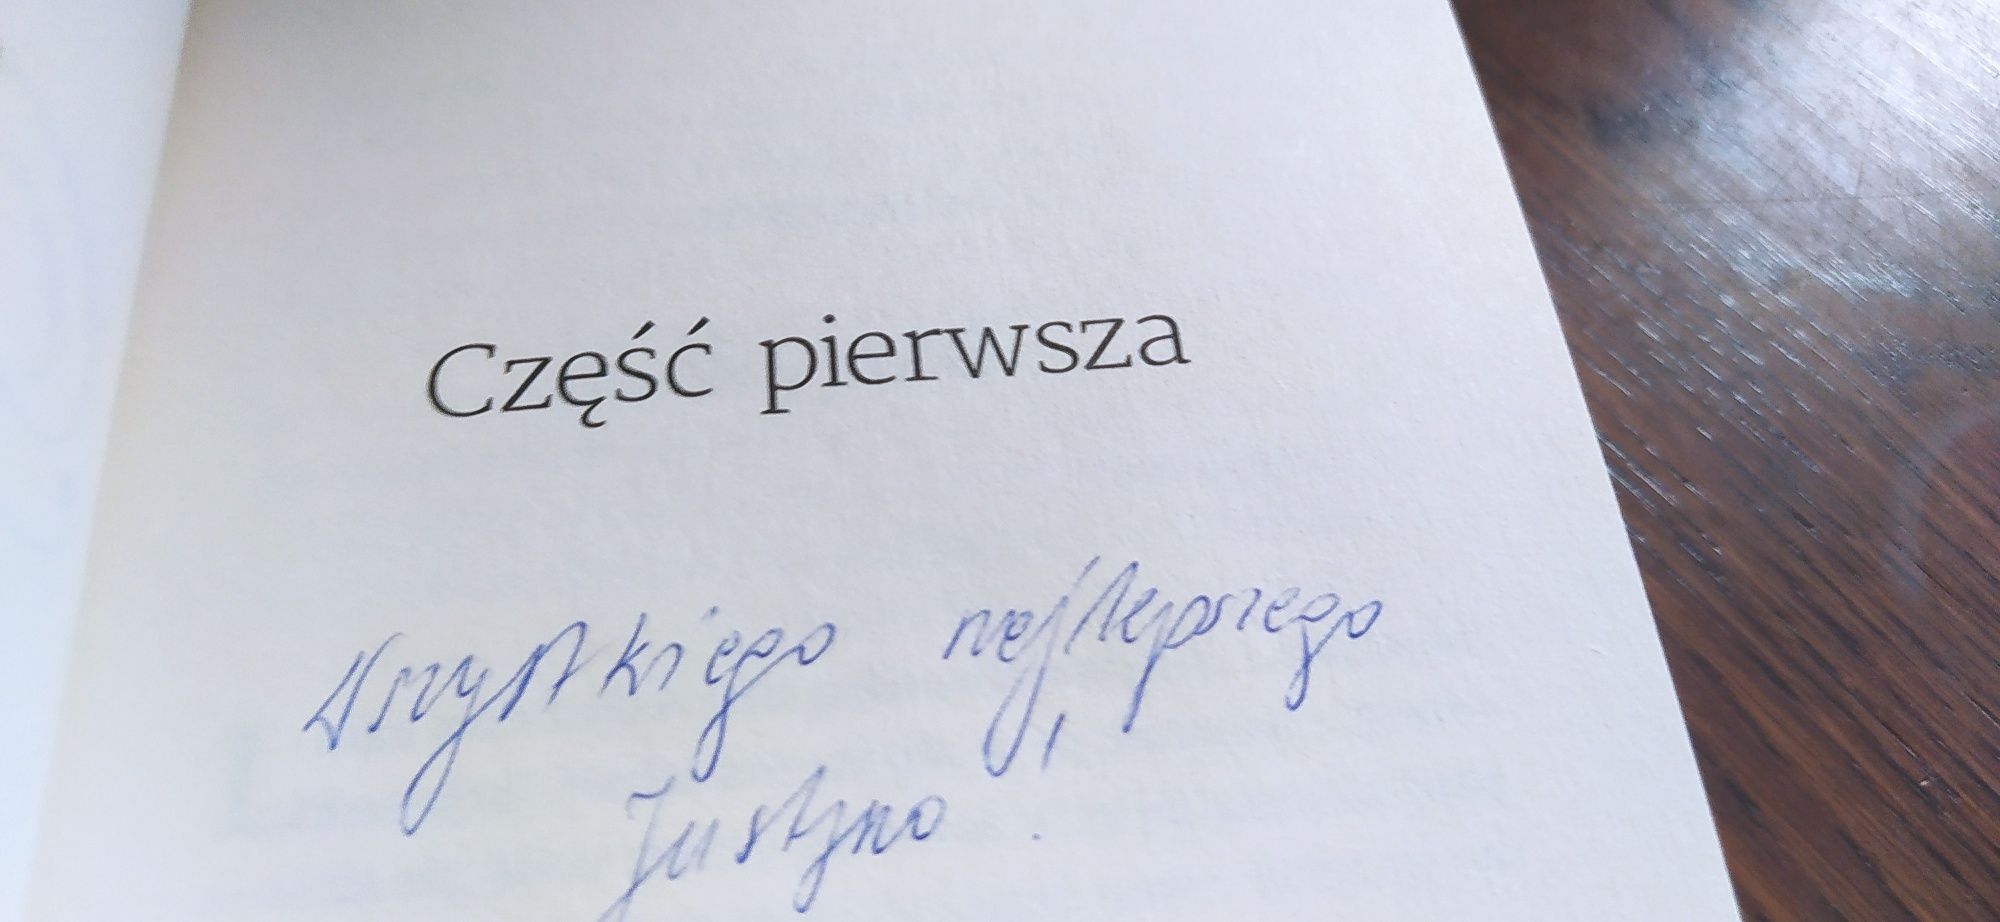 Część pierwsza
Wszystkiego najlepszego
Justyno!